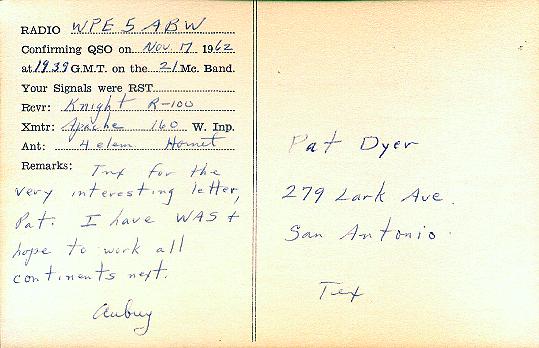 RADIO WPE5ABW
Confirming QSO on Nov 17 1962
at 1939 G.M.T. on the 21 Mc. Band.
Your Signals were RST
Rcvr: Knight R-100
Xmtr: Apache 160 W. Inp.
Ant: 4 elem Hornet
Remarks: Tnx for the
very interesting letter,
Pat. I have WAS &
hope to work all
continents next.
Aubrey
Pat Dyer
279 Lark Ave.
San Antonio
Tex